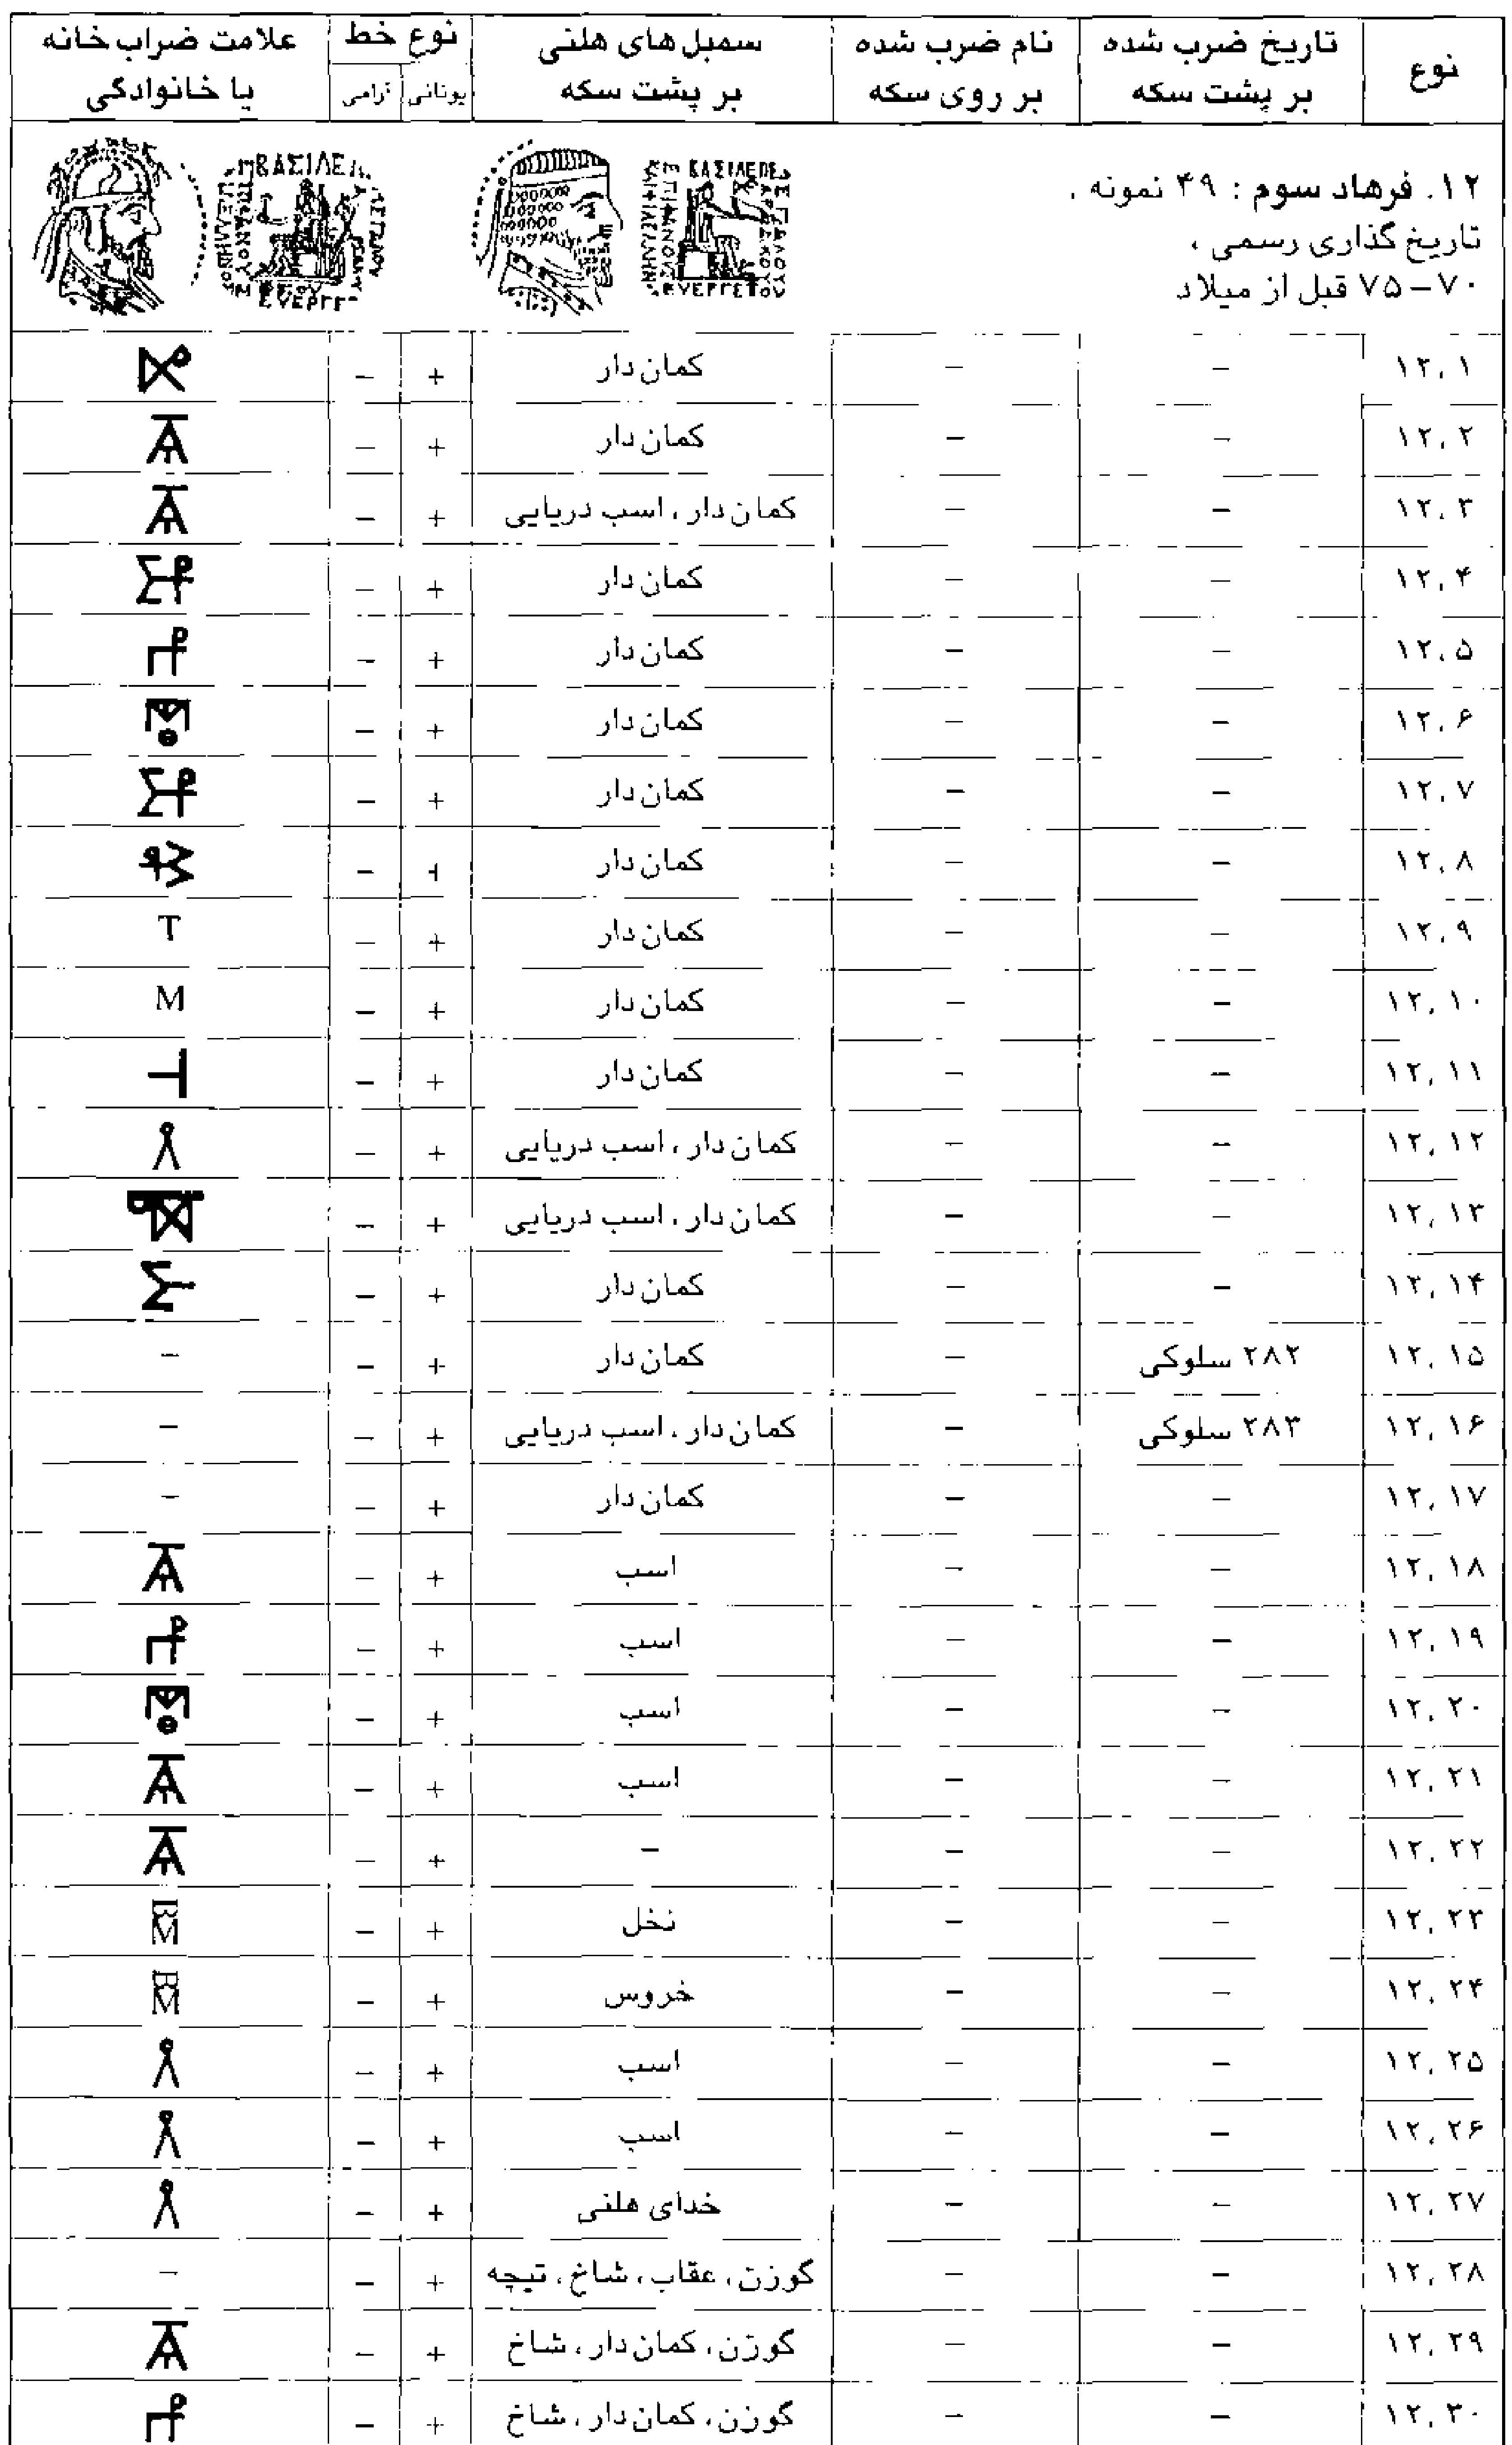 نوع | تاریخ ضرب شده بر پشت سکه | نام ضرب شده بر روی سکه | سمبل های هلنی بر پشت سکه | نوع خط یونانی آرامی | علامت ضراب خانه یا خانوادگی
۱۲. فرهاد سوم : ۴۹ نمونه ،
تاریخ گذاری رسمی ،
۷۰–۷۵ قبل از میلاد
۱۲،۱ | – | – | کمان‌دار | + | –
۱۲،۲ | – | – | کمان‌دار | + | –
۱۲،۳ | – | – | کمان‌دار ، اسب دریایی | + | –
۱۲،۴ | – | – | کمان‌دار | + | –
۱۲،۵ | – | – | کمان‌دار | + | –
۱۲،۶ | – | – | کمان‌دار | + | –
۱۲،۷ | – | – | کمان‌دار | + | –
۱۲،۸ | – | – | کمان‌دار | + | –
۱۲،۹ | – | – | کمان‌دار | + | – | T
۱۲،۱۰ | – | – | کمان‌دار | + | – | M
۱۲،۱۱ | – | – | کمان‌دار | + | –
۱۲،۱۲ | – | – | کمان‌دار ، اسب دریایی | + | –
۱۲،۱۳ | – | – | کمان‌دار ، اسب دریایی | + | –
۱۲،۱۴ | – | – | کمان‌دار | + | –
۱۲،۱۵ | ۲۸۲ سلوکی | – | کمان‌دار | + | – | –
۱۲،۱۶ | ۲۸۳ سلوکی | – | کمان‌دار ، اسب دریایی | + | – | –
۱۲،۱۷ | – | – | کمان‌دار | + | – | –
۱۲،۱۸ | – | – | اسب | + | –
۱۲،۱۹ | – | – | اسب | + | –
۱۲،۲۰ | – | – | اسب | + | –
۱۲،۲۱ | – | – | اسب | + | –
۱۲،۲۲ | – | – | – | + | –
۱۲،۲۳ | – | – | نخل | + | –
۱۲،۲۴ | – | – | خروس | + | –
۱۲،۲۵ | – | – | اسب | + | –
۱۲،۲۶ | – | – | اسب | + | –
۱۲،۲۷ | – | – | خدای هلنی | + | –
۱۲،۲۸ | – | – | گوزن، عقاب ، شاخ ، تیچه | + | – | –
۱۲،۲۹ | – | – | گوزن، کمان‌دار ، شاخ | + | –
۱۲،۳۰ | – | – | گوزن، کمان‌دار ، شاخ | + | –